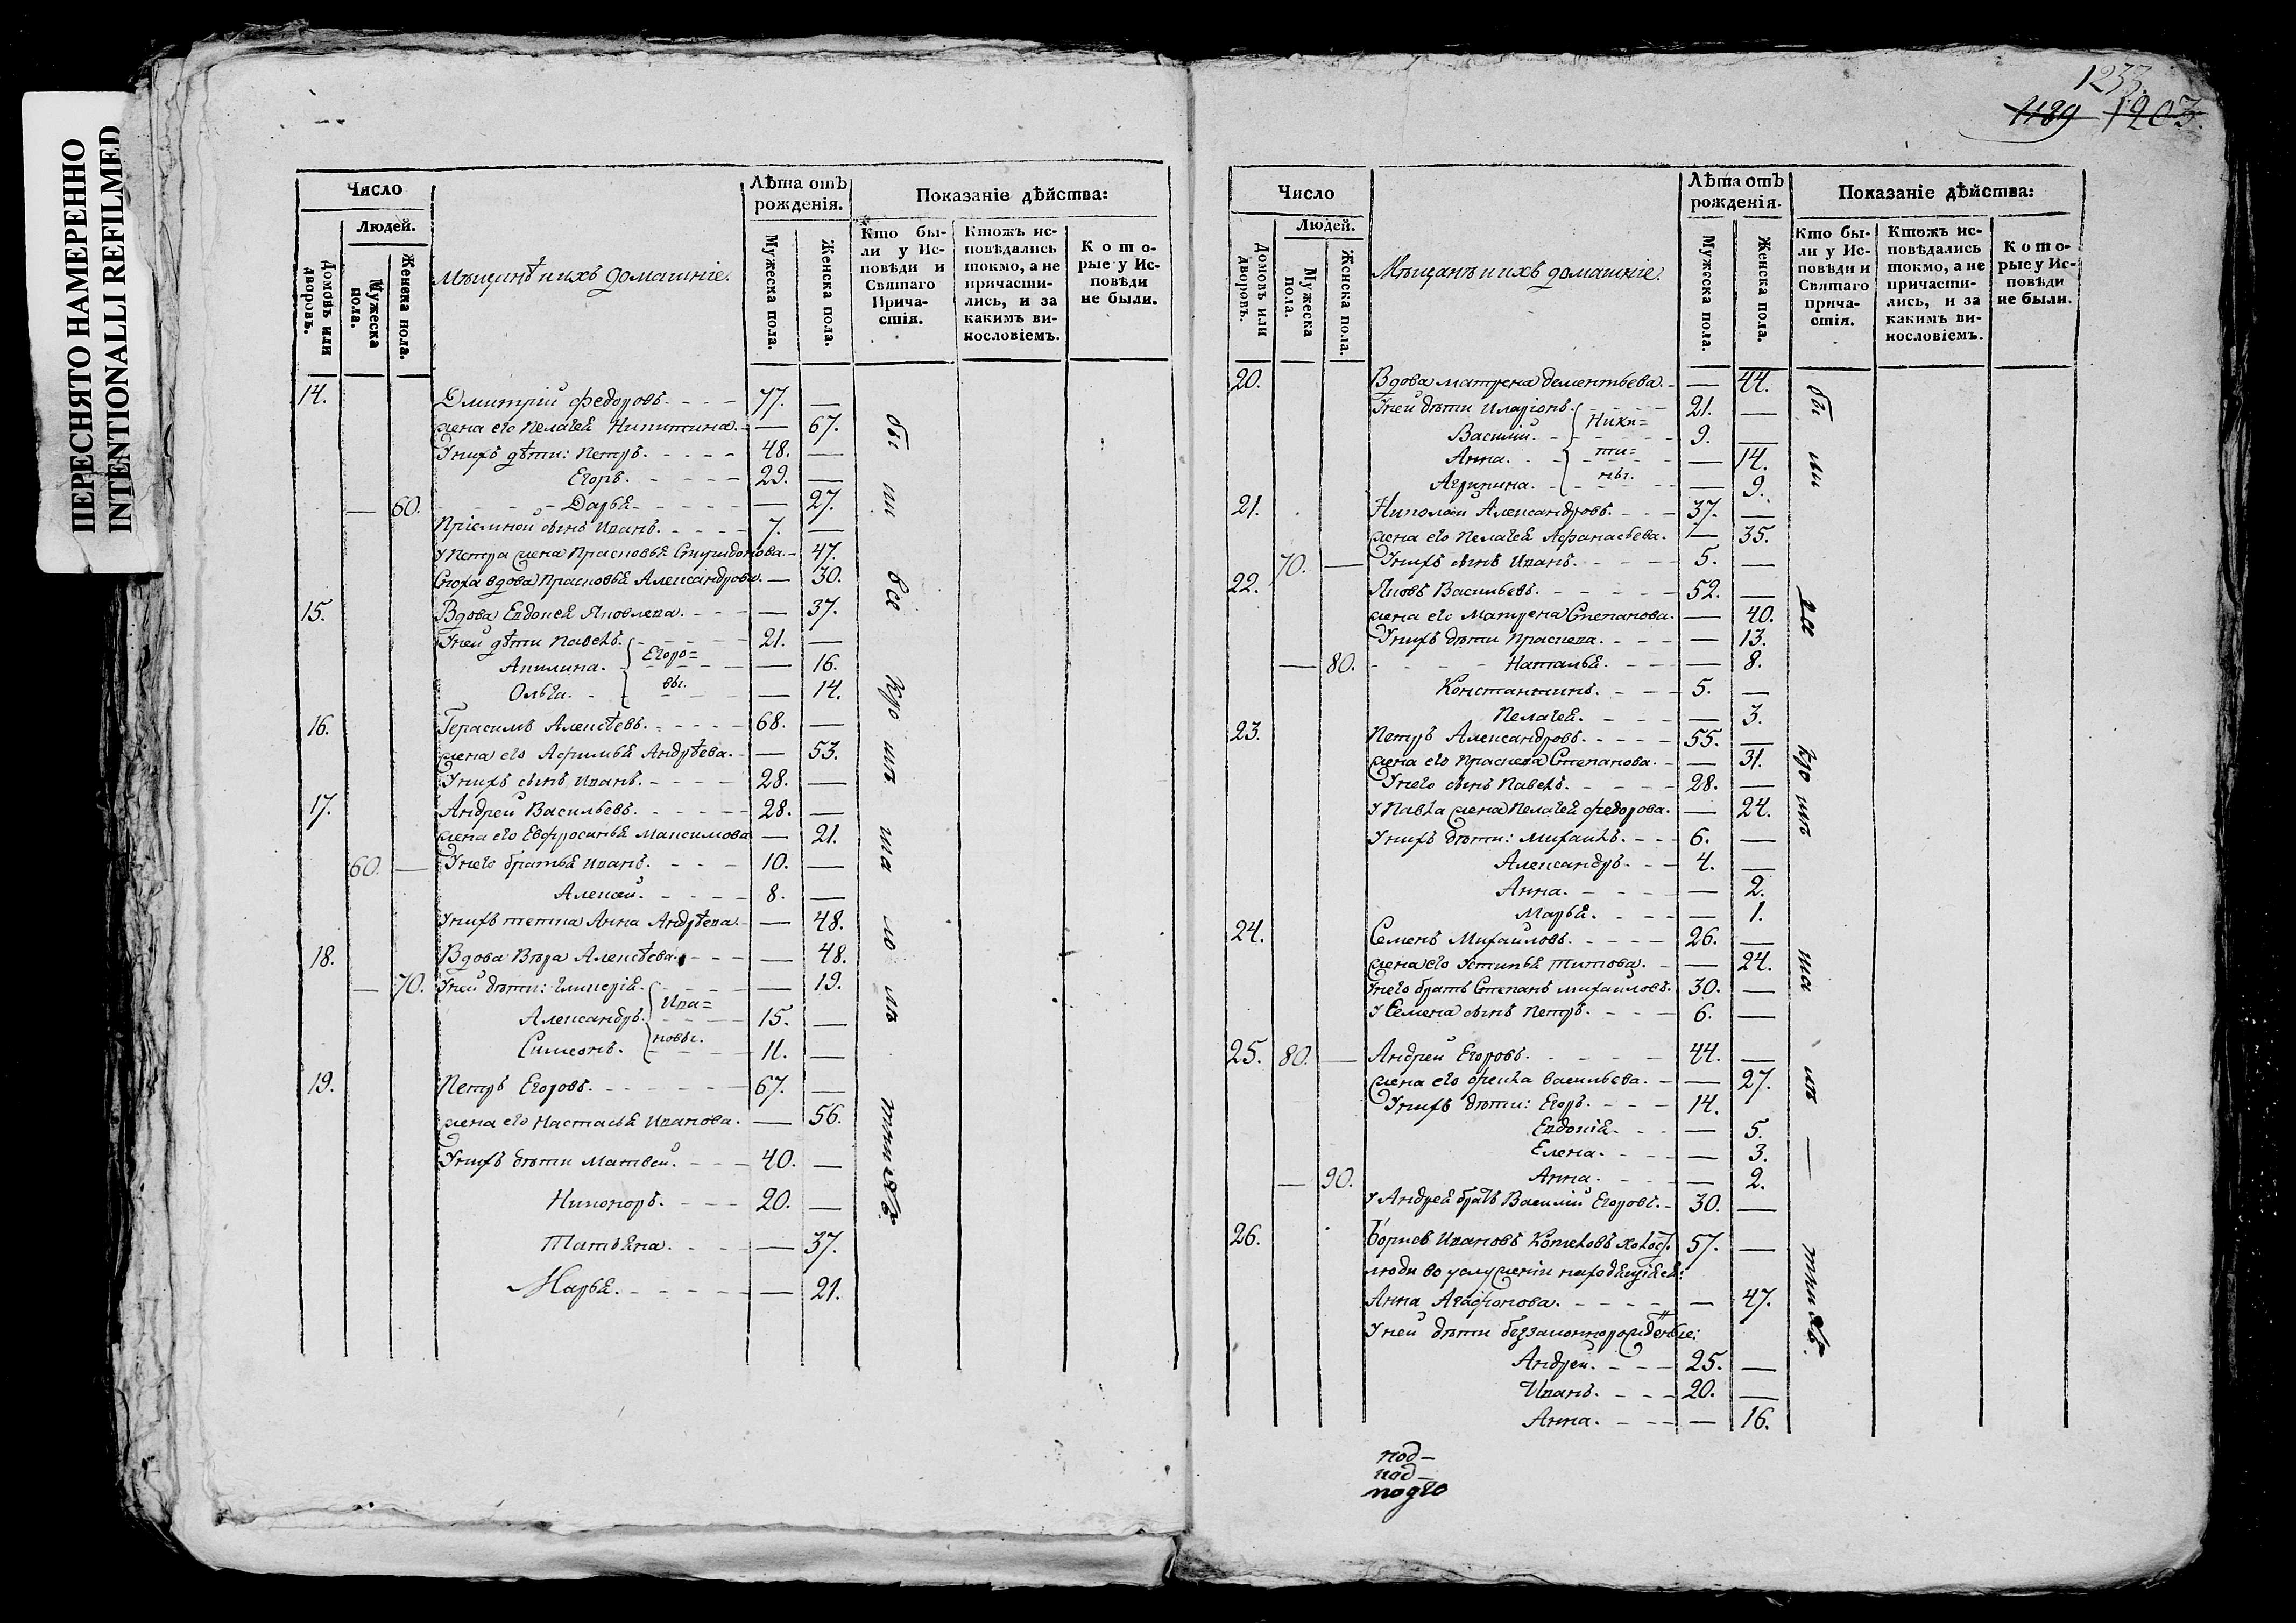 ПЕРЕСНЯТО НАМЕРЕННО
INTENTIONALLI REFILMED
Число
Людей.
Домовъ или дворовъ.
Мужеска пола.
Женска пола.
Мѣщанѣ и ихъ домашніе.
Лѣта отъ рожденія.
Мужеска пола.
Женска пола.
Показаніе дѣйства:
Кто бы-
ли у Ис-
повѣди и
Святаго
Прича-
стія.
Ктожъ ис-
повѣдались
токмо, а не
причасти-
лись, и за
какимъ ви-
нословіемъ.
Кото-
рые у Ис-
повѣди
не были.
14. Дмитрій Федоровъ. 77. —
жена его Пелагея Никитина. — 67.
У нихъ дѣти: Петръ. 48. —
Егоръ. 29. —
— 60. Дарья — 27.
Пріемной сынъ Иванъ. 7. —
У Петра жена Прасковья Спиридонова. — 47.
Сноха вдова Прасковья Александрова. — 30.
15. Вдова Евдокея Яковлева. — 37.
У ней дѣти Павелъ. 21. —
Акилина. Егоро= — 16.
Ольга. вы. — 14.
16. Герасимъ Алексѣевъ. 68. —
жена его Афимья Андрѣева. — 53.
У нихъ сынъ Иванъ. 28. —
17. Андрей Васильевъ. 28. —
жена его Евфросинья Максимова — 21.
60. — У него братья Иванъ. 10. —
Алексей. 8. —
У нихъ тетка Анна Андрѣева. — 48.
18. Вдова Вѣра Алексѣева. — 48.
— 70. У ней дѣти: Гликерія. — 19.
Александръ. Ива= 15. —
Симеонъ. новы. 11. —
19. Петръ Егоровъ. 67. —
жена его Настасья Иванова. — 56.
У нихъ дѣти Матвей. 40. —
Никоноръ. 20. —
Татьяна. — 37.
Марья. — 21.
бы ли все
1233.
1189 1203.
Число
Людей.
Домовъ или дворовъ.
Мужеска пола.
Женска пола.
Мѣщанѣ и ихъ домашніе.
Лѣта отъ рожденія.
Мужеска пола.
Женска пола.
Показаніе дѣйства:
Кто бы-
ли у Ис-
повѣди и
Святаго
прича-
стія.
Ктожъ ис-
повѣдались
токмо, а не
причасти-
лись, и за
какимъ ви-
нословіемъ.
Кото-
рые у Ис-
повѣди
не были.
20. Вдова Матрена Дементьева. — 44.
У ней дѣти Иларіонъ. 21. —
Василій. Ники= 9. —
Анна. ти= — 14.
Агрипина. ны. — 9.
21. Николай Александровъ. 37. —
жена его Пелагея Афанасьева. — 35.
70. — У нихъ сынъ Иванъ. 5. —
22. Яковъ Васильевъ. 52. —
жена его Матрена Степанова. — 40.
У нихъ дѣти Праскева. — 13.
— 80. Наталья. — 8.
Константинъ. 5. —
Пелагея. — 3.
23. Петръ Александровъ. 55. —
жена его Праскева Степанова. — 31.
У него сынъ Павелъ. 28. —
У Павла жена Пелагея Федорова. — 24.
У нихъ дѣти: Михаилъ. 6. —
Александръ. 4. —
Анна. — 2.
Марья. — 1.
24. Семенъ Михайловъ. 26. —
жена его Устинья Титова. — 24.
У него братъ Степанъ Михайловъ. 30. —
У Семена сынъ Петръ. 6. —
25. 80. — Андрей Егоровъ. 44. —
жена его Фекла Васильева. — 27.
У нихъ дѣти: Егоръ. 14.
Евдокія. — 5.
Елена. — 3.
— 90. Анна. — 2.
У Андрея братъ Василій Егоровъ. 30. —
26. Борисъ Ивановъ Котеловъ холос. 57. —
люди во услуженіи находящіяся:
Анна Агафонова. — 47.
У ней дѣти беззаконнорожденные:
Андрей. 25. —
Иванъ. 20. —
Анна. — 16.
бы ли